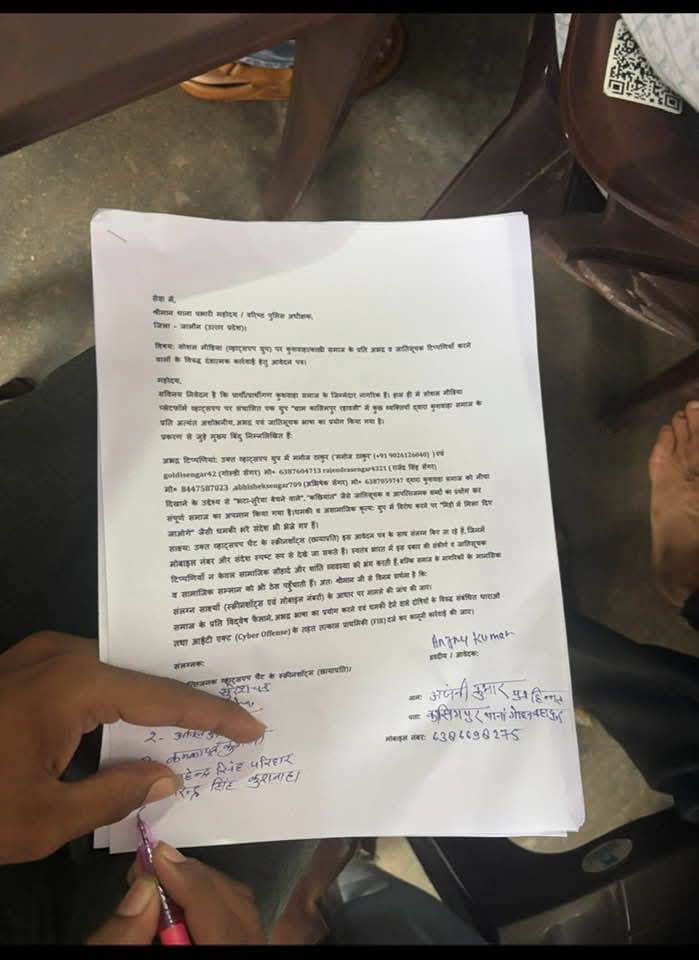 सेवा में,
श्रीमान थाना प्रभारी महोदय / वरिष्ठ पुलिस अधीक्षक,
जिला - जालौन (उत्तर प्रदेश)।
विषय: सोशल मीडिया (व्हाट्सएप ग्रुप) पर कुशवाहा/काछी समाज के प्रति अभद्र व जातिसूचक टिप्पणियाँ करने
वालों के विरुद्ध दंडात्मक कार्रवाई हेतु आवेदन पत्र।
महोदय,
सविनय निवेदन है कि प्रार्थी/प्रार्थीगण कुशवाहा समाज के जिम्मेदार नागरिक हैं। हाल ही में सोशल मीडिया
प्लेटफॉर्म व्हाट्सएप पर संचालित एक ग्रुप "ग्राम कासिमपुर रहावली" में कुछ व्यक्तियों द्वारा कुशवाहा समाज के
प्रति अत्यंत अशोभनीय, अभद्र एवं जातिसूचक भाषा का प्रयोग किया गया है।
प्रकरण से जुड़े मुख्य बिंदु निम्नलिखित हैं:
अभद्र टिप्पणियां: उक्त व्हाट्सएप ग्रुप में मनोज ठाकुर ('मनोज ठाकुर' (+91 9026126040) ) एवं
goldisengar42 (गोल्डी सेंगर) मो॰ 6387604713 rajendrasengar4321 (राजेंद्र सिंह सेंगर)
मो॰ 8447587023 ,abhisheksengar709 (अभिषेक सेंगर) मो॰ 6387059747 द्वारा कुशवाहा समाज को नीचा
दिखाने के उद्देश्य से "भटा-मुरिया बेचने वाले", "कछियांत" जैसे जातिसूचक व आपत्तिजनक शब्दों का प्रयोग कर
संपूर्ण समाज का अपमान किया गया है। धमकी व असामाजिक कृत्य: ग्रुप में विरोध करने पर "मिट्टी में मिला दिए
जाओगे" जैसी धमकी भरे संदेश भी भेजे गए हैं।
साक्ष्य: उक्त व्हाट्सएप चैट के स्क्रीनशॉट्स (छायाप्रति) इस आवेदन पत्र के साथ संलग्न किए जा रहे हैं, जिनमें
मोबाइल नंबर और संदेश स्पष्ट रूप से देखे जा सकते हैं। स्वतंत्र भारत में इस प्रकार की संकीर्ण व जातिसूचक
टिप्पणियाँ न केवल सामाजिक सौहार्द और शांति व्यवस्था को भंग करती हैं, बल्कि समाज के नागरिकों के मानसिक
व सामाजिक सम्मान को भी ठेस पहुँचाती हैं। अतः श्रीमान जी से विनम्र प्रार्थना है कि:
संलग्न साक्ष्यों (स्क्रीनशॉट्स एवं मोबाइल नंबरों) के आधार पर मामले की जांच की जाए।
समाज के प्रति विद्वेष फैलाने, अभद्र भाषा का प्रयोग करने एवं धमकी देने वाले दोषियों के विरुद्ध संबंधित धाराओं
तथा आईटी एक्ट (Cyber Offense) के तहत तत्काल प्राथमिकी (FIR) दर्ज कर कानूनी कार्रवाई की जाए।
Anjny Kumar
प्रार्थी / आवेदक:
संलग्नक:
व्हाट्सएप चैट के स्क्रीनशॉट्स (छायाप्रति)।
नाम: अंजनी कुमार पुत्र
पता: कासिमपुर थाना
मोबाइल नंबर: 6386698275
2-
सिंह परिहार
सिंह कुशवाहा